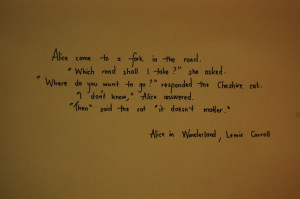 Alice came to a fork in the road.
"Which road shall I take?" she asked.
"Where do you want to go?" responded the Cheshire cat.
"I don't know," Alice answered.
"Then" said the cat "it doesn't matter."
Alice in Wonderland, Lewis Carroll